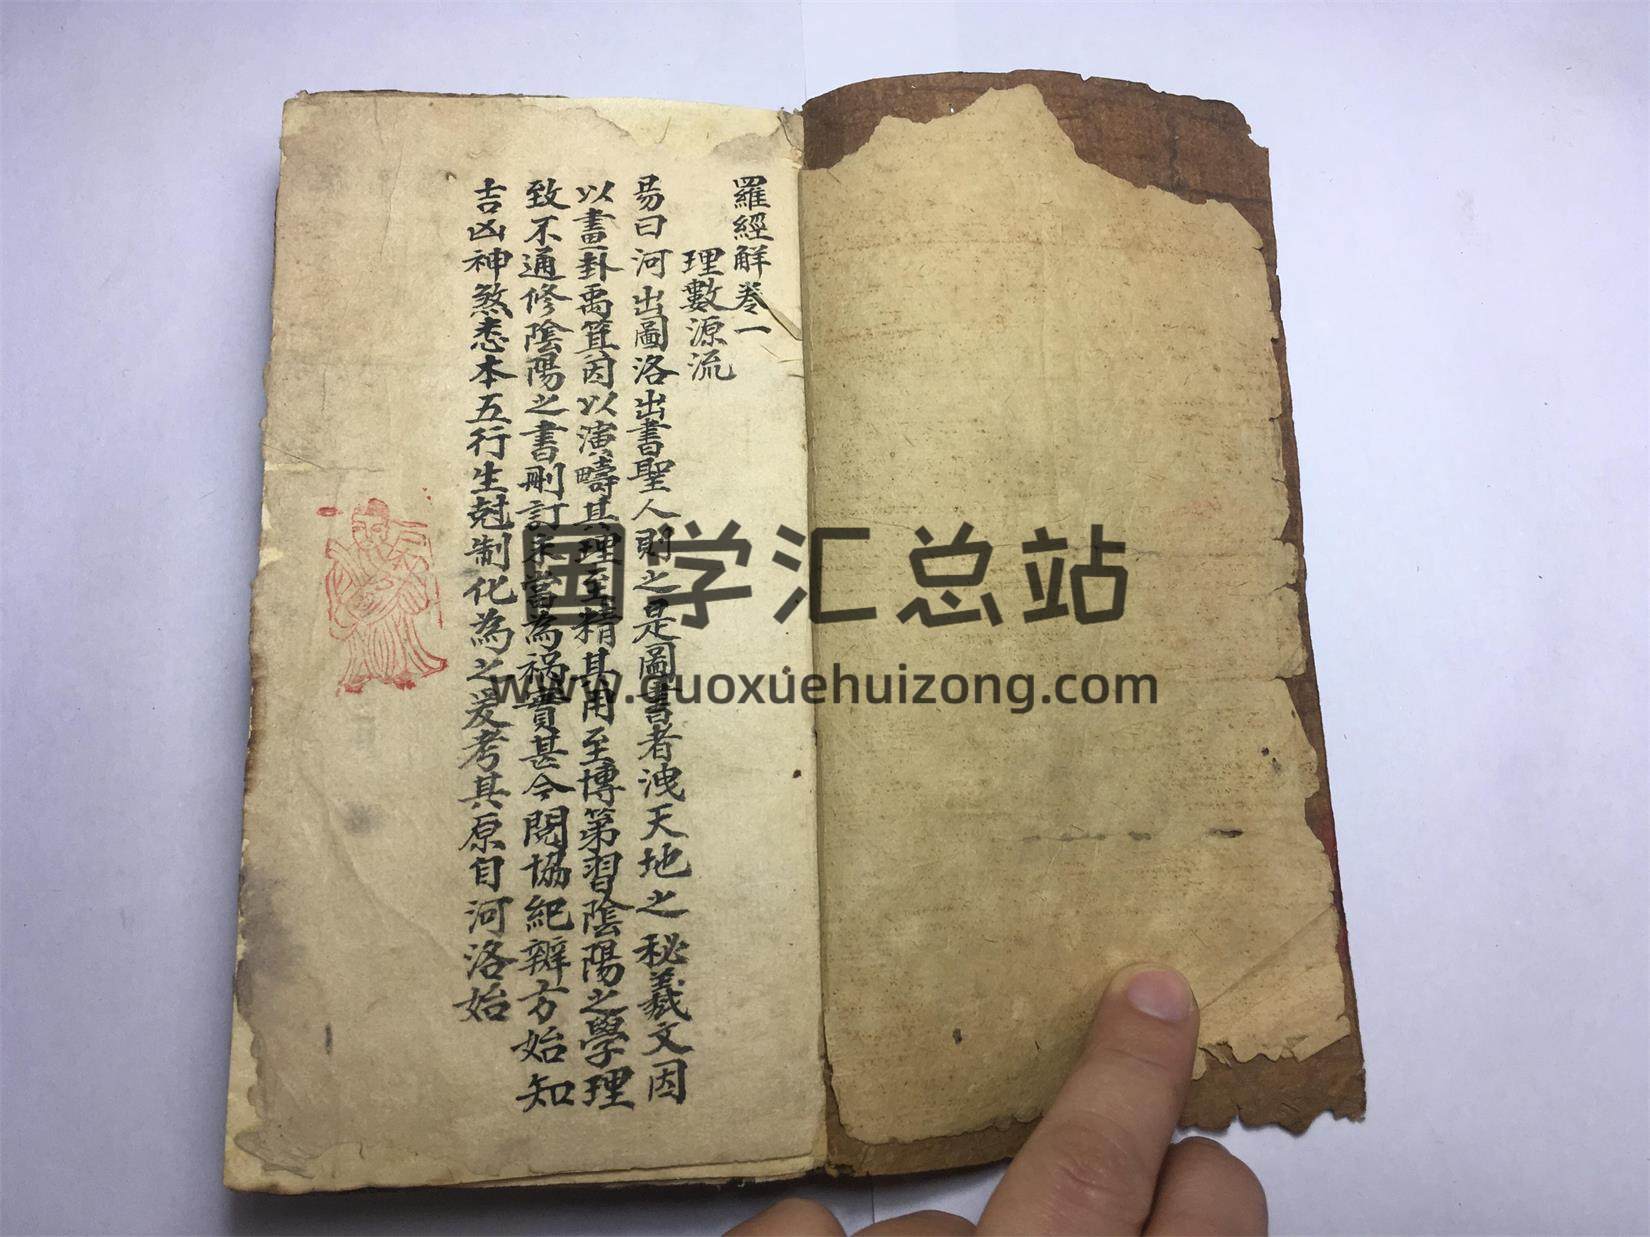 羅經解卷一
理數源流
易曰河出圖洛出書聖人則之是圖書者洩天地之秘羲文因
以畫卦禹箕因以演疇其理至精其用至博第習陰陽之學理
致不通修陰陽之書刪訂未當為禍實甚今閱協紀辨方始知
吉凶神煞悉本五行生尅制化為之爰考其原自河洛始
国学汇总站
www.guoxuehuizong.com